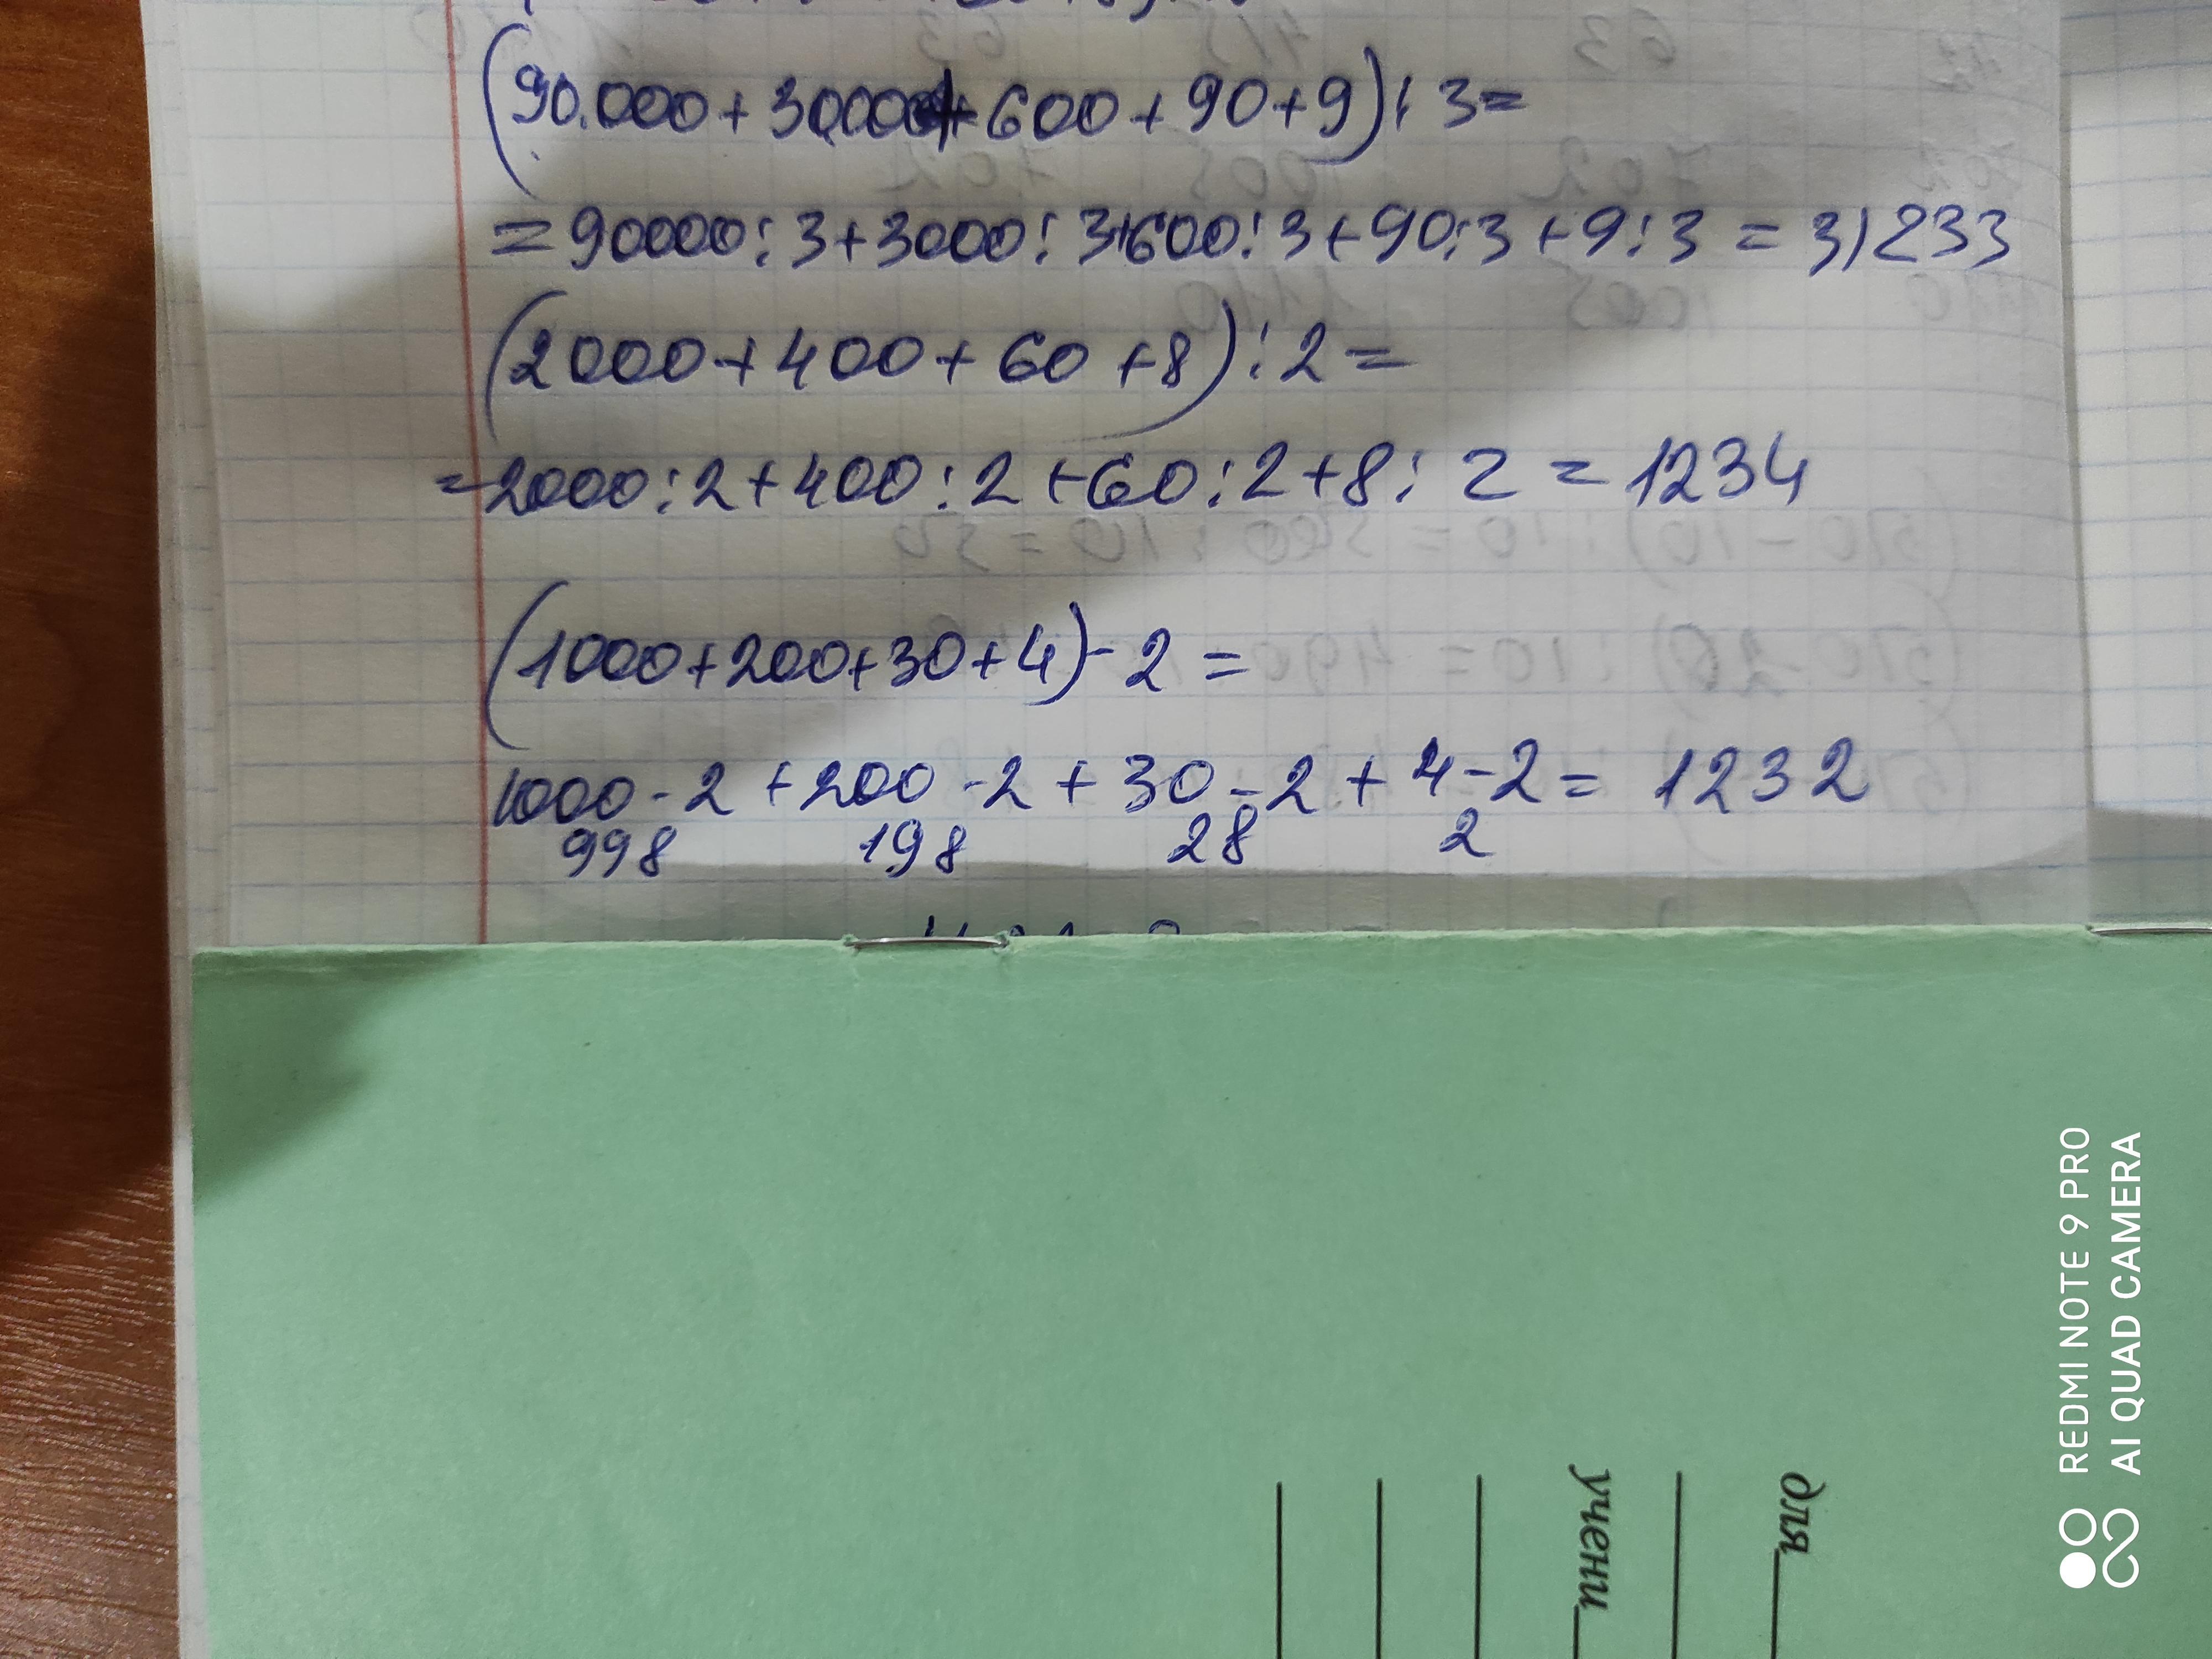 (90.000+3000+600+90+9):3=
=90000:3+3000:3+600:3+90:3+9:3=31233
(2000+400+60+8):2=
=2000:2+400:2+60:2+8:2=1234
(1000+200+30+4)-2=
1000-2+200-2+30-2+4-2=1232
998 198 28 2
для
учени
REDMI NOTE 9 PRO
AI QUAD CAMERA